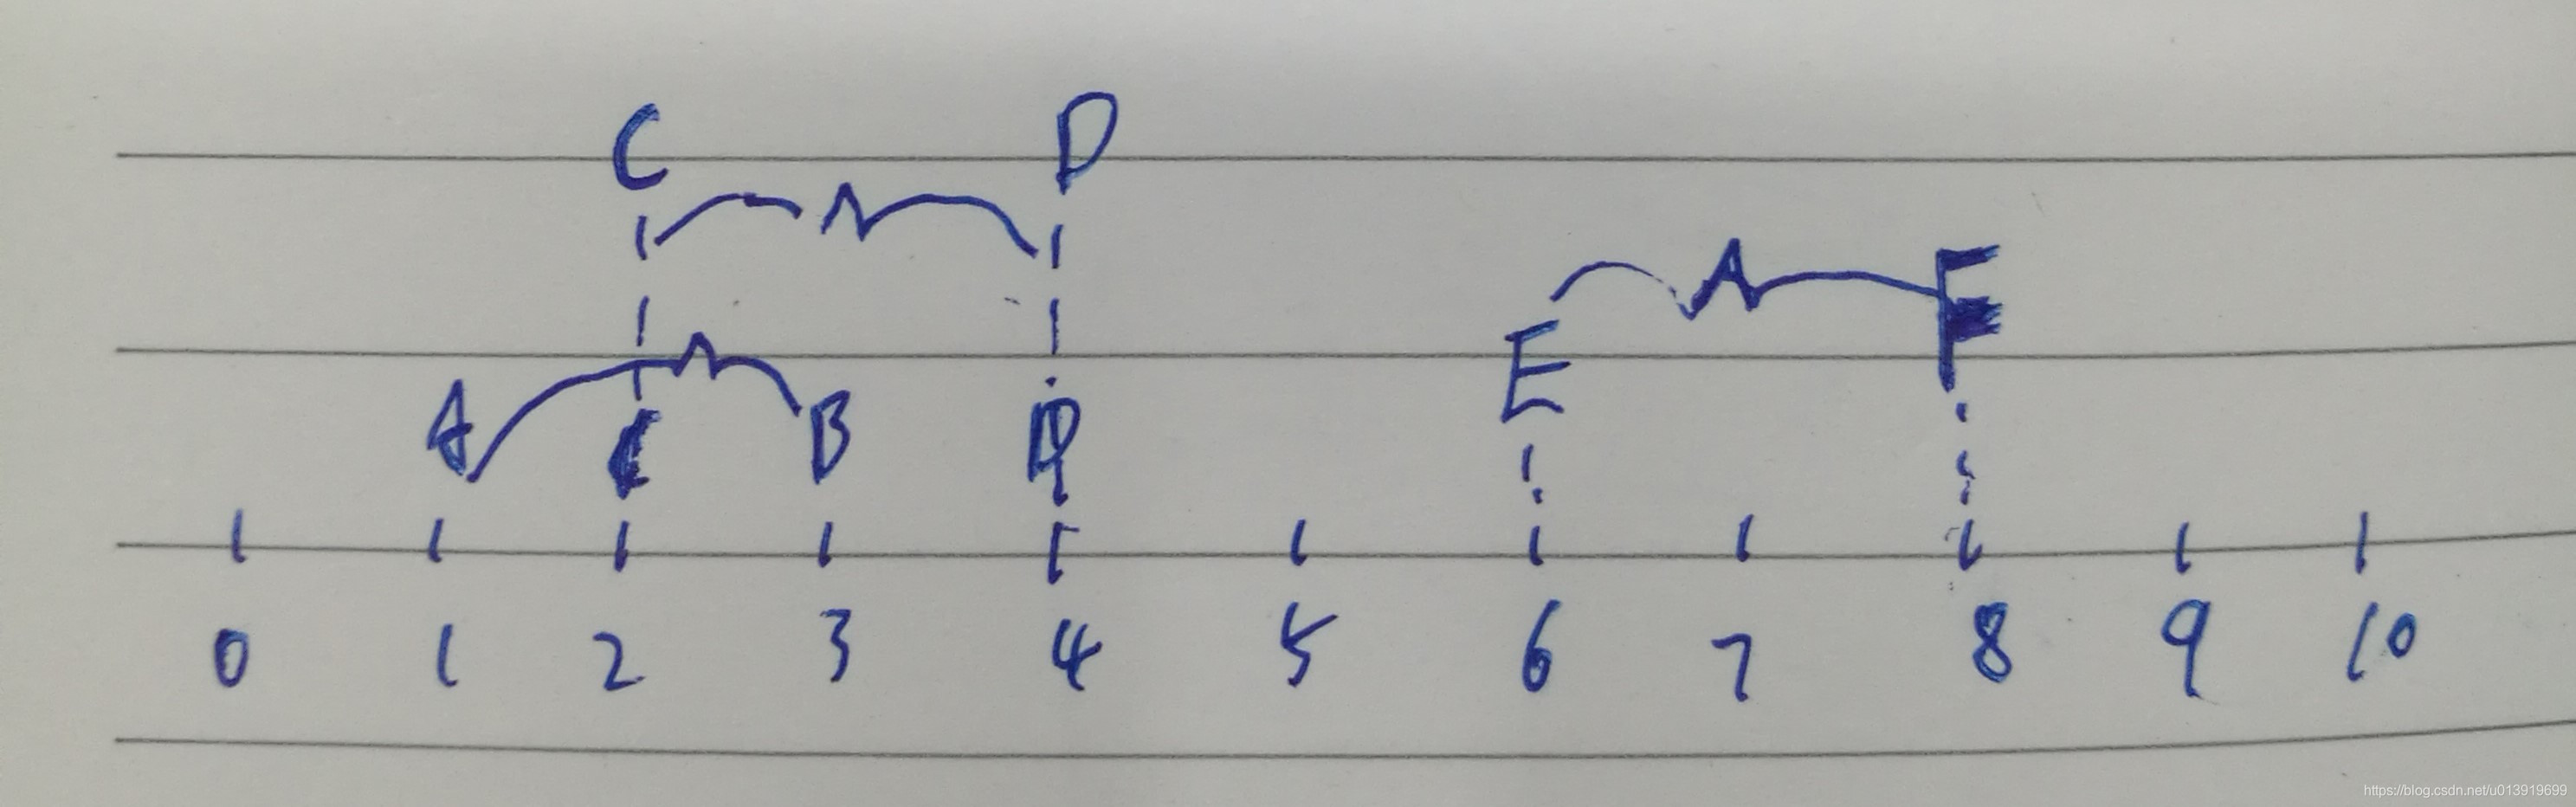 C D
E F
A C B D
0 1 2 3 4 5 6 7 8 9 10
https://blog.csdn.net/u013919699